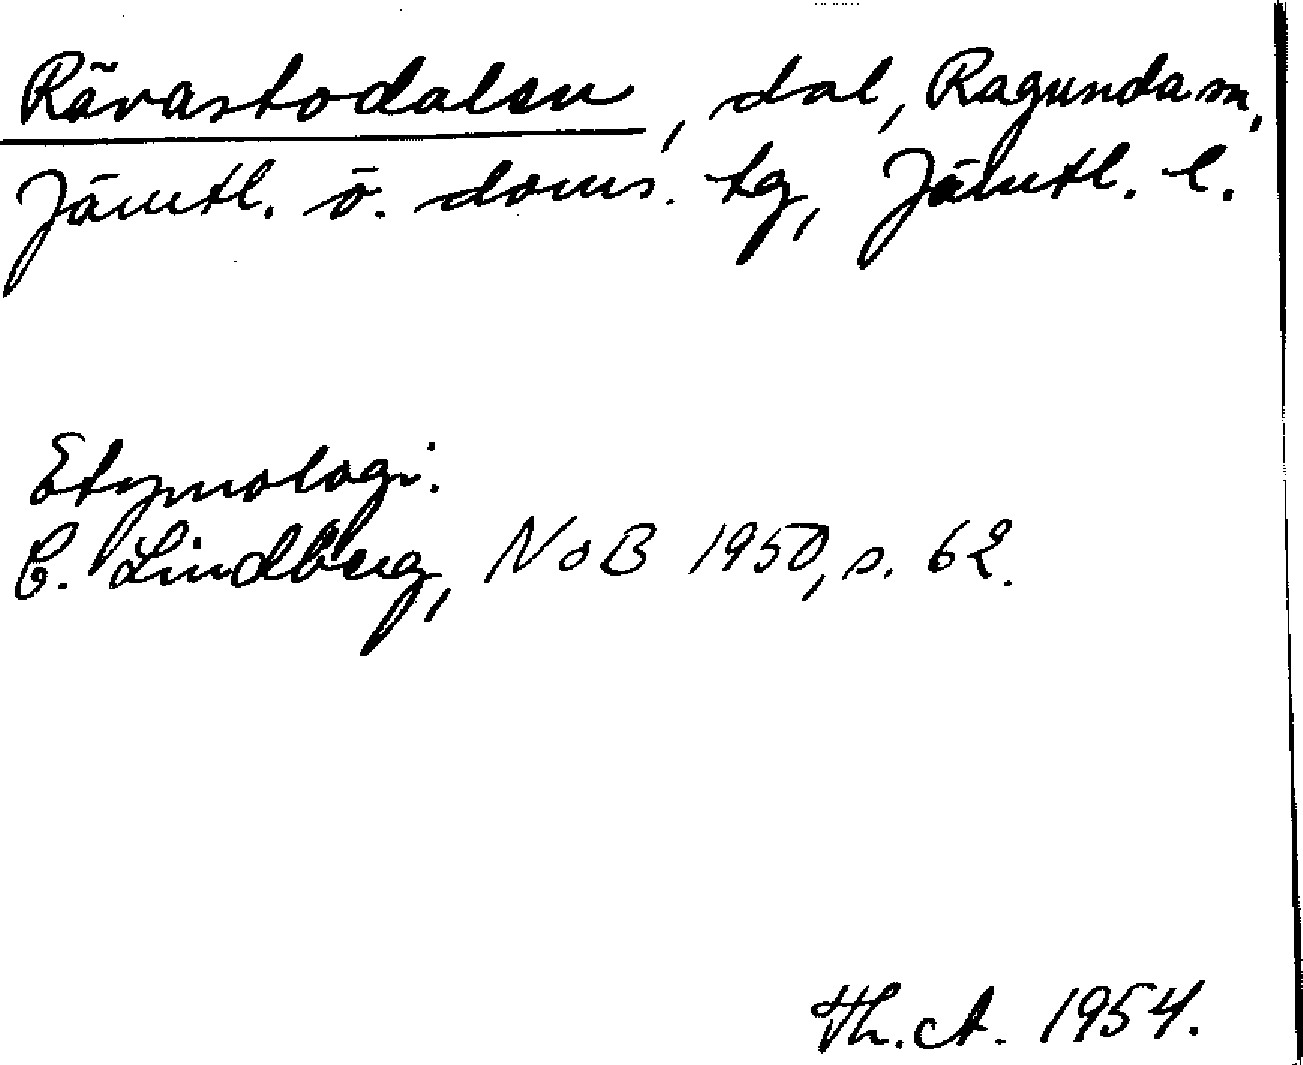 Rävastodalen, dal, Ragunda sn,
Jämtl. ö. doms. tg, Jämtl. l.
Etymologi:
C. Lindberg, NoB 1950, s. 62.
Th. A. 1954.